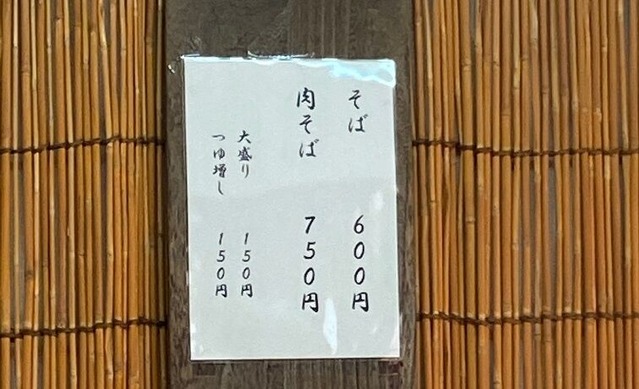 そば 600円
肉そば 750円
大盛り 150円
つゆ増し 150円